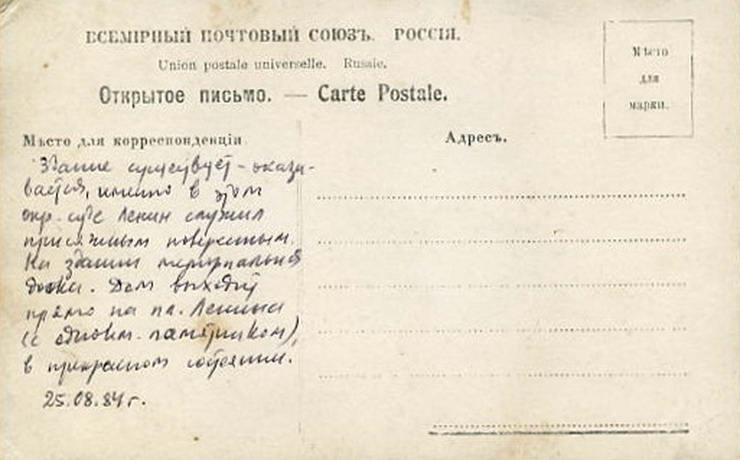 ВСЕМІРНЫЙ ПОЧТОВЫЙ СОЮЗЪ. РОССІЯ.
Union postale universelle. Russie.
Открытое письмо. — Carte Postale.
Мѣсто
для
марки.
Мѣсто для корреспонденціи
Адресъ.
Здание существует - оказы-
вается, именно в этом
окр. суде Ленин служил
присяжным поверенным.
На здании мемориальная
доска. Дом выходит
прямо на пл. Ленина
(с одноим. памятником),
в прекрасном состоянии.
25.08.84 г.